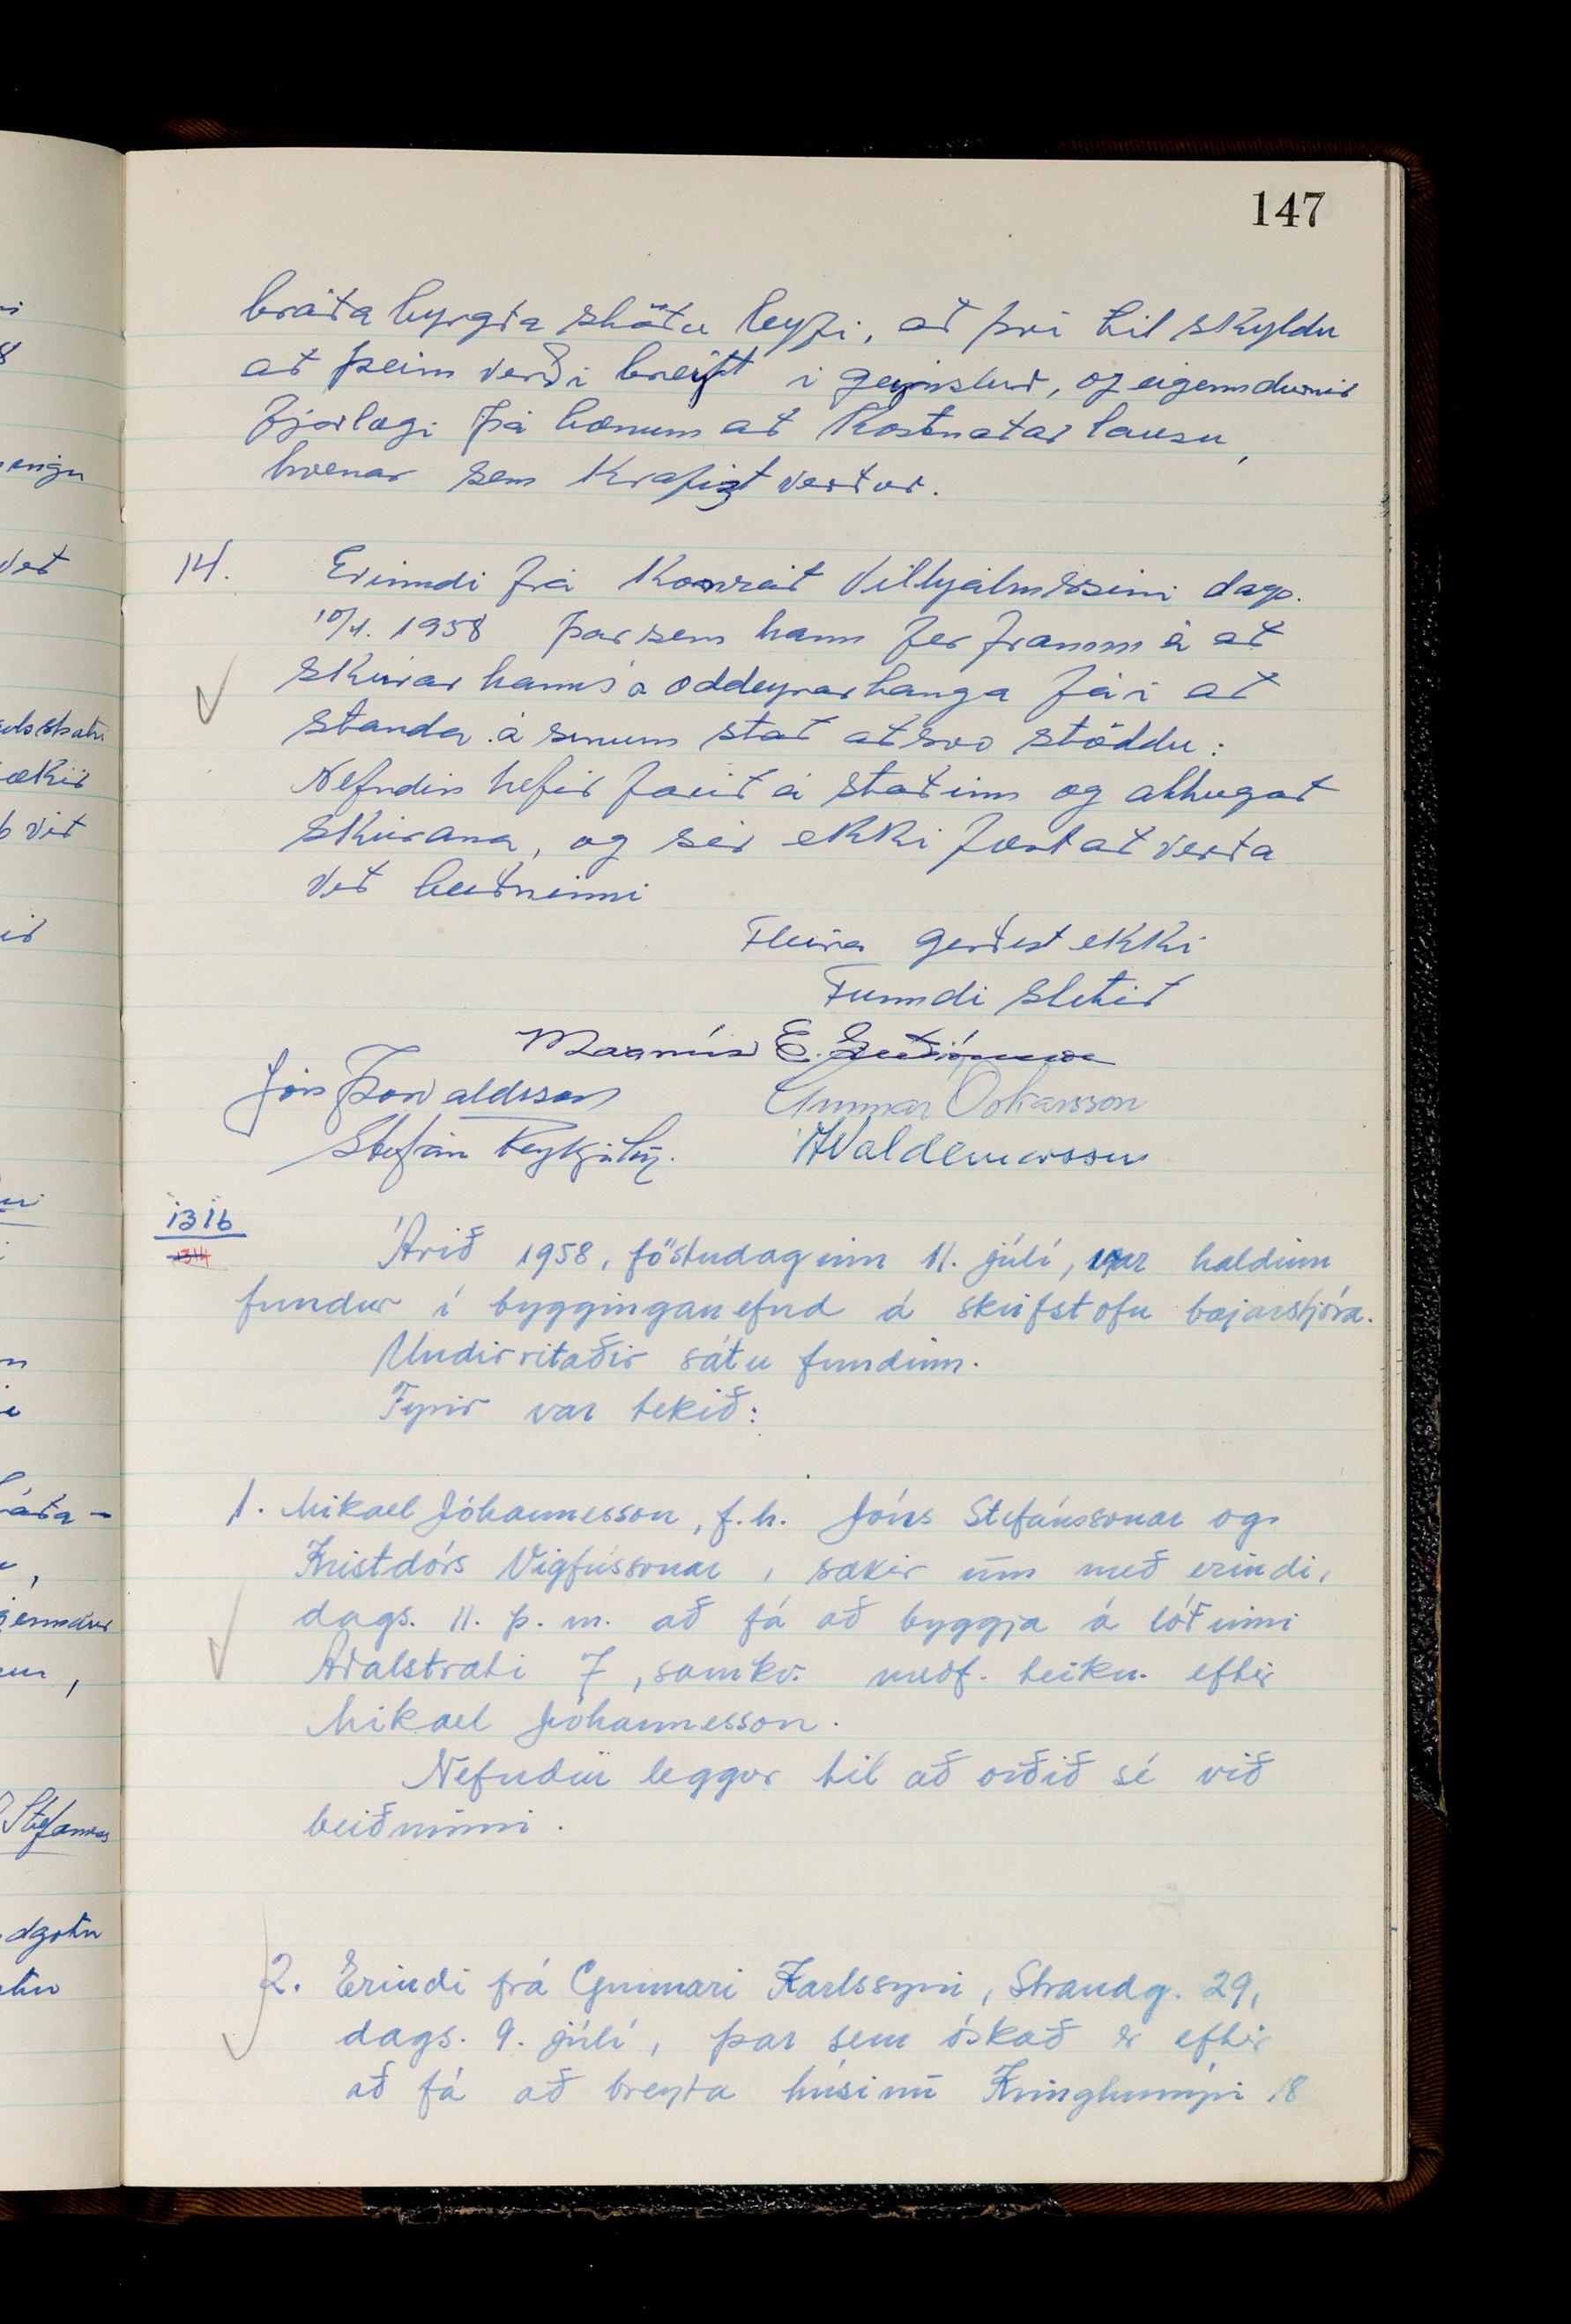 147
bráðabyrgða stöðu leyfi, að því til skyldu
að þeim verði breytt í geymslur, og eigenndurnir
fjarlægi þá bænum að kostnaðar lausu,
hvenær sem krafist verður.
14. Erinndi frá Konráð Vilhjálmssini dags.
10/4. 1958 þar sem hann fer framm á at
skúrar hanns á Oddeyrartanga fái at
standa á sínum stað at svo stöddu:
Nefndin hefir farið á staðinn og athugað
skúrana, og sér ekki fært at verða
við beiðninni
Fleira gerðist ekki
Funndi slitið
Magnús E. Guðjónsson
Jón Þorvaldsson Gunnar Óskarsson
Stefán Reykjalín. HValdemarsson
1316
1314
Árið 1958, föstudaginn 11. júlí, var haldinn
fundur í bygginganefnd á skrifstofu bæjarstjóra.
Undirritaðir sátu fundinn.
Fyrir var tekið:
1. Mikael Jóhannesson, f.h. Jóns Stefánssonar og
Kristdórs Vigfússonar, sækir um með erindi,
dags. 11. þ.m. að fá að byggja á lóðinni
Aðalstræti 7, samkv. meðf. teikn. eftir
Mikael Jóhannesson.
Nefndin leggur til að orðið sé við
beiðninni.
2. Erindi frá Gunnari Karlssyni, Strandg. 29,
dags. 9. júlí, þar sem óskað er eftir
að fá að breyta húsinu Kringlumýri 18